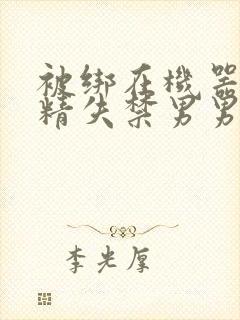 被绑在机器
精失禁男男
李光厚